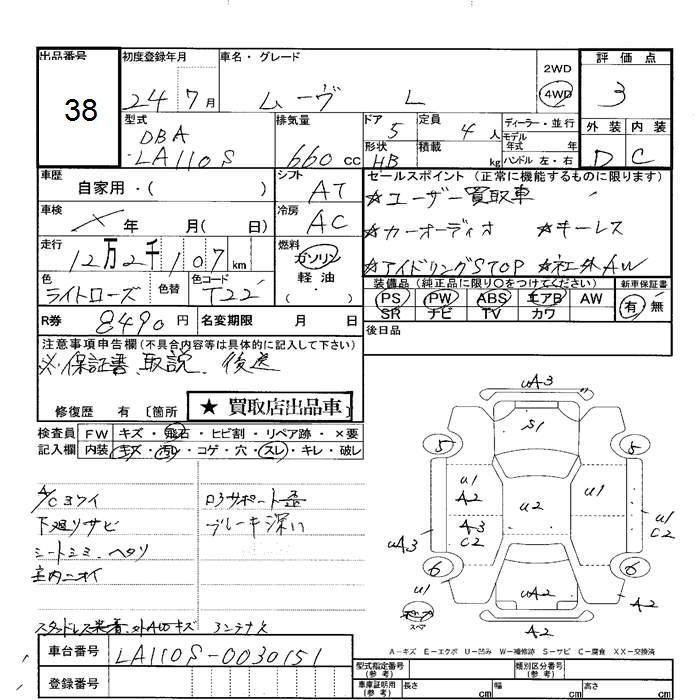 出品番号 初度登録年月 車名・グレード 評価点
38 24 7月 ムーヴ L 2WD 4WD 3
型式 排気量 ドア 定員 ディーラー・並行 外装 内装
DBA 5 4人 モデル年式 年
LA110S 660cc 形状 HB 積載 kg ハンドル 左・右 D C
車歴 シフト セールスポイント(正常に機能するものに限ります)
自家用・( ) AT ☆ユーザー買取車
車検 冷房 ☆カーオーディオ ☆キーレス
× 年 月( 日) AC
走行 燃料 ☆アイドリングSTOP ☆社外AW
12万2千107km ガソリン 装備品(純正品に限り○をつけてください) 新車保証書
色 色替 色コード 軽油 PS PW ABS エアB AW 有 無
ライトローズ T22 ( ) SR ナビ TV カワ
R券 8490円 名変期限 月 日 後日品
注意事項申告欄(不具合内容等は具体的に記入して下さい)
※保証書、取説、後送
修復歴 有 〔箇所 ★ 買取店出品車
検査員 FW キズ・飛石・ヒビ割・リペア跡・×要
記入欄 内装 キズ・汚レ・コゲ・穴・スレ・キレ・破レ
A/Cヨワイ ロアサポート歪
下廻りサビ ブレーキ深い
シートシミ、ヘタリ
車内ニオイ
スタッドレス装着、外AWキズ
uA3
S1
5 5
u1 A2 u2 u1
uA3 A3 C2 u1 C2
6 6
u1 uA2 A2
スペア A2
A-キズ E-エクボ U-凹み W-補修跡 S-サビ C-腐食 XX-交換済
車台番号 LA110S-0030151 型式指定番号(参考) 類別区分番号(参考)
登録番号 車庫証明用(参考) 長さ cm 幅 cm 高さ cm